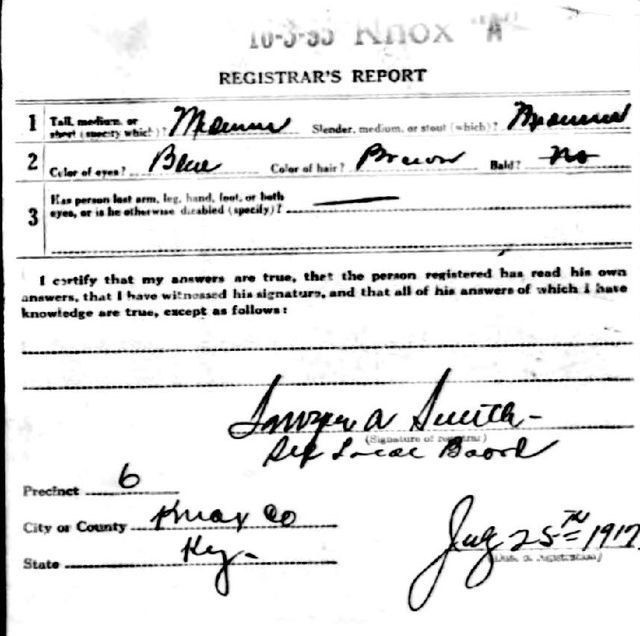 Knox "A"
REGISTRAR'S REPORT
1 Tall, medium, or short (specify which)? Medium Slender, medium, or stout (which)? Medium
2 Color of eyes? Blue Color of hair? Brown Bald? no
3 Has person lost arm, leg, hand, foot, or both eyes, or is he otherwise disabled (specify)?
I certify that my answers are true, that the person registered has read his own
answers, that I have witnessed his signature, and that all of his answers of which I have
knowledge are true, except as follows:
A Smith
(Signature of registrar)
Local Board
Precinct 6
City or County Knox Co
State Ky.
25TH 1917
(Date of registration)